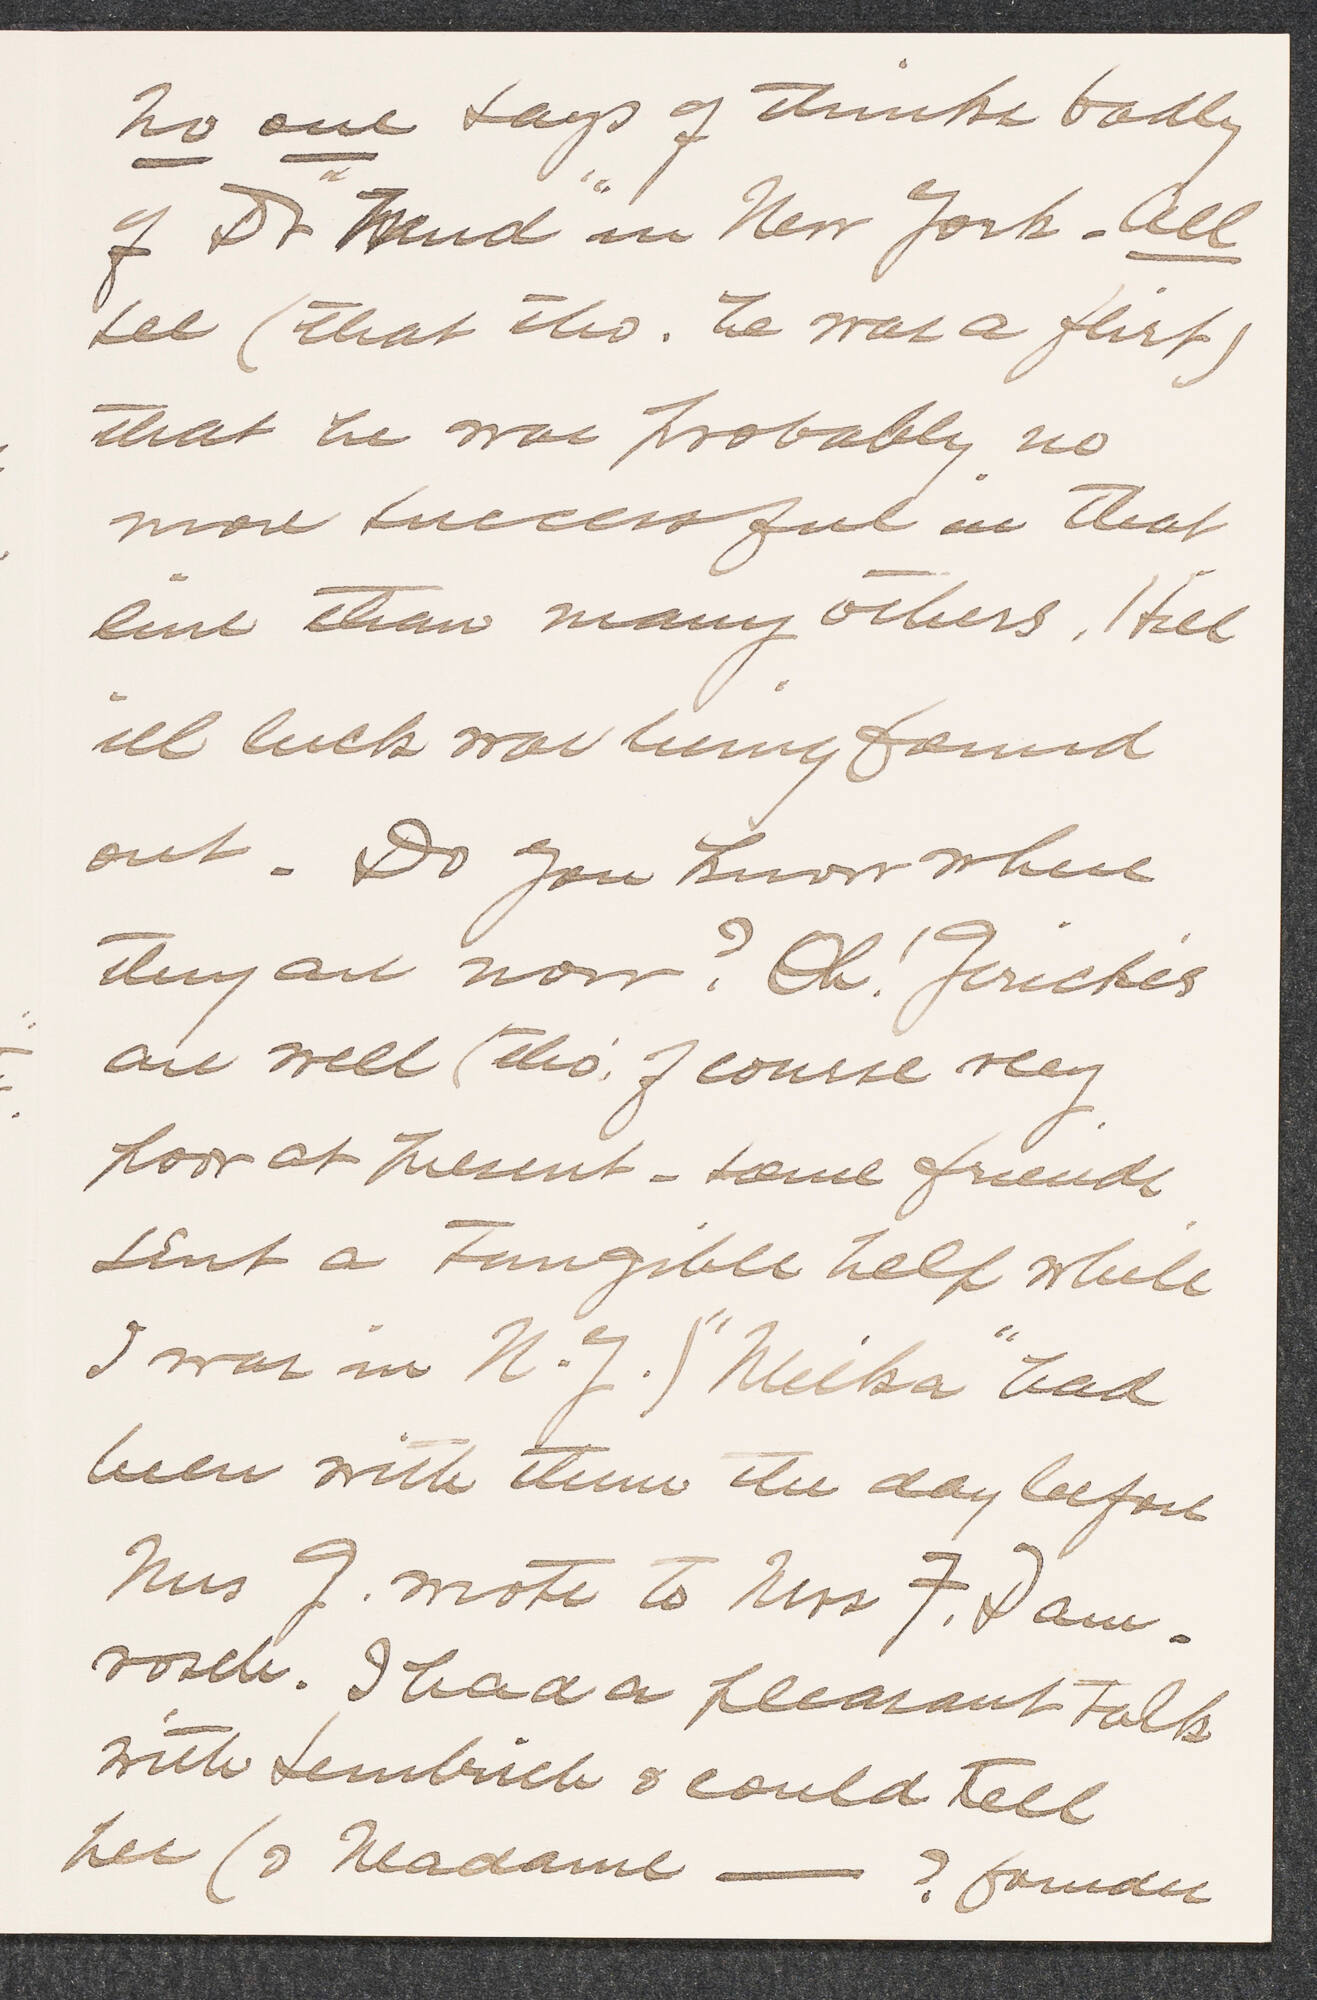 No one says or thinks badly
of Dr "Mund" in New York - All
see (that tho. he was a flirt)
that he was probably no
more successful in that
line than many others. His
ill luck was being found
out - Do you know where
they are now? Oh! Jerickés
are well (tho' of course very
poor at present - some friends
sent a tangible help while
I was in N.Y.) "Meika" had
been with them the day before
Mrs J. wrote to Mrs F. Dam-
rosch. I had a pleasant talk
with Sembrich & could tell
her (& Madame — ? founder